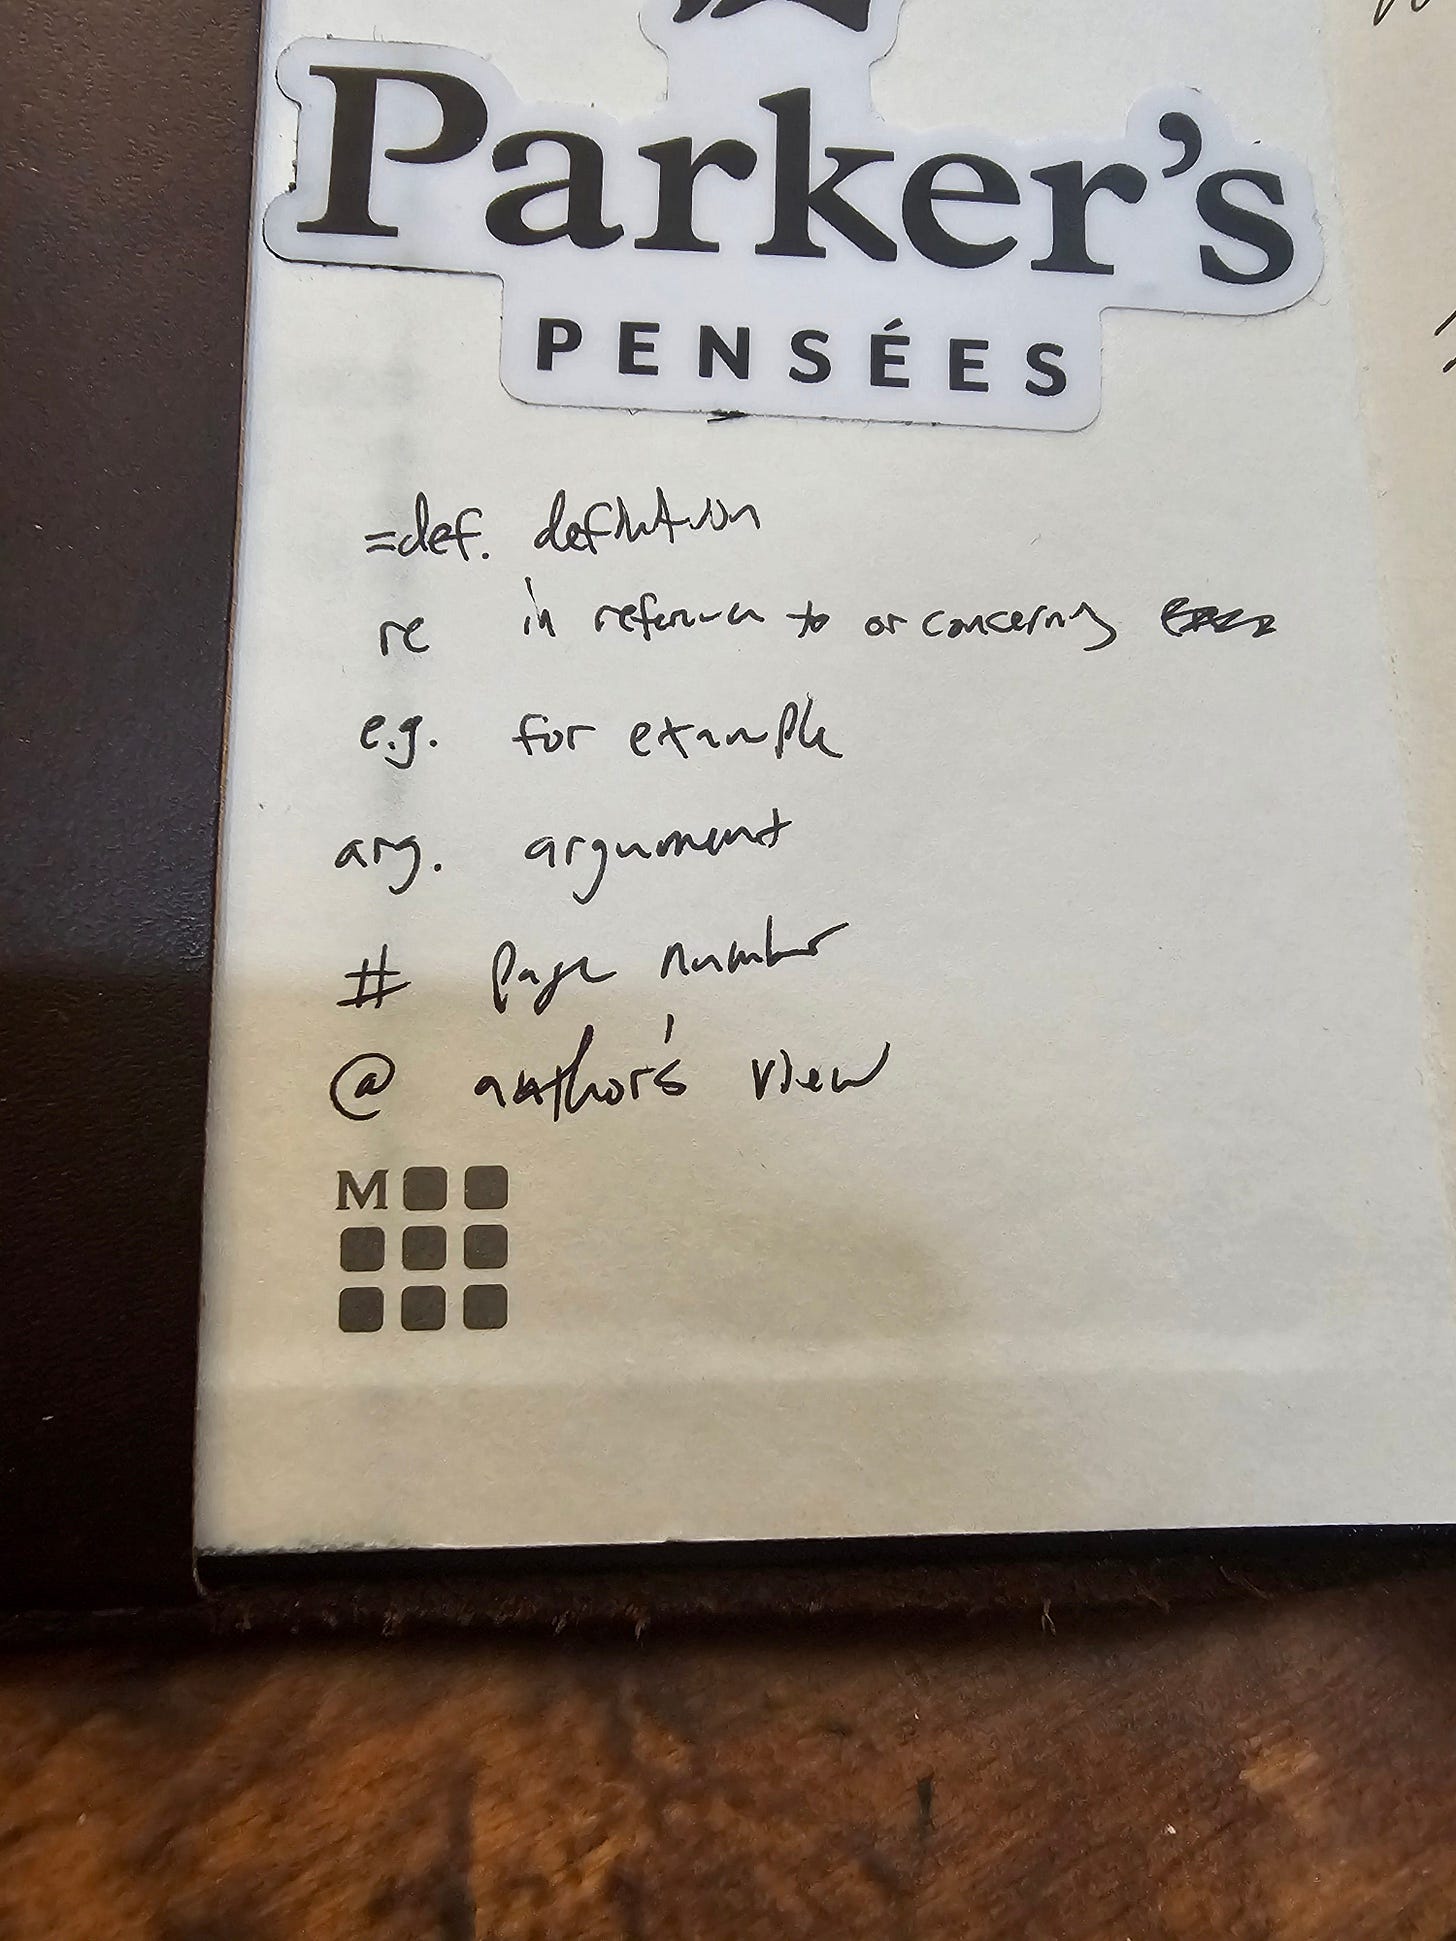 Parker's
PENSÉES
=def. definition
re in reference to or concerning
e.g. for example
arg. argument
# page number
@ author's view
M